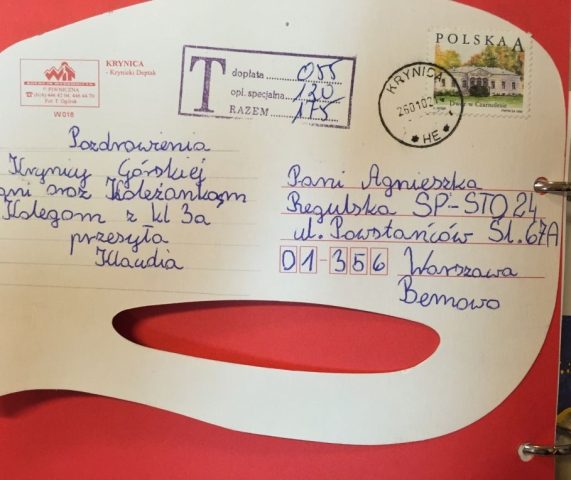 KRYNICA
- Krynicki Deptak
W 016
T
dopłata 055
opł. specjalna 120
RAZEM 175
POLSKA A
KRYNICA
260102
* HE *
Pozdrowienia
Krynicy Górskiej
oraz Koleżankom
Kolegom z kl 3a
przesyła
Klaudia
Pani Agnieszka
Regulska SP-STO 24
ul. Powstańców Śl. 67A
01-356 Warszawa
Bemowo